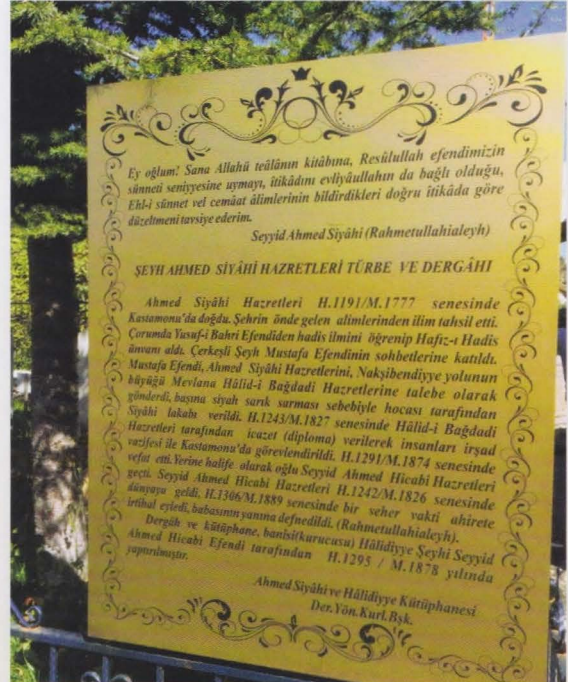 Ey oğlum! Sana Allahü teâlânın kitâbına, Resûlullah efendimizin
sünneti seniyyesine uymayı, îtikâdını evliyâullahın da bağlı olduğu,
Ehl-i sünnet vel cemâat âlimlerinin bildirdikleri doğru îtikâda göre
düzeltmeni tavsiye ederim.
Seyyid Ahmed Siyâhi (Rahmetullahialeyh)
ŞEYH AHMED SİYÂHİ HAZRETLERİ TÜRBE VE DERGÂHI
Ahmed Siyâhi Hazretleri H.1191/M.1777 senesinde
Kastamonu'da doğdu. Şehrin önde gelen alimlerinden ilim tahsil etti.
Çorumda Yusuf-i Bahri Efendiden hadis ilmini öğrenip Hafız-ı Hadis
ünvanı aldı. Çerkeşli Şeyh Mustafa Efendinin sohbetlerine katıldı.
Mustafa Efendi, Ahmed Siyâhi Hazretlerini, Nakşibendiyye yolunun
büyüğü Mevlana Hâlid-i Bağdadi Hazretlerine talebe olarak
gönderdi, başına siyah sarık sarması sebebiyle hocası tarafından
Siyâhi lakabı verildi. H.1243/M.1827 senesinde Hâlid-i Bağdadi
Hazretleri tarafından icazet (diploma) verilerek insanları irşad
vazifesi ile Kastamonu'da görevlendirildi. H.1291/M.1874 senesinde
vefat etti. Yerine halife olarak oğlu Seyyid Ahmed Hicabi Hazretleri
geçti. Seyyid Ahmed Hicabi Hazretleri H.1242/M.1826 senesinde
dünyaya geldi. H.1306/M.1889 senesinde bir seher vakti ahirete
irtihal eyledi, babasının yanına defnedildi. (Rahmetullahialeyh).
Dergâh ve kütüphane, banisi(kurucusu) Hâlidiyye Şeyhi Seyyid
Ahmed Hicabi Efendi tarafından H.1295 / M.1878 yılında
yaptırılmıştır.
Ahmed Siyâhi ve Hâlidiyye Kütüphanesi
Der.Yön.Kurl.Bşk.